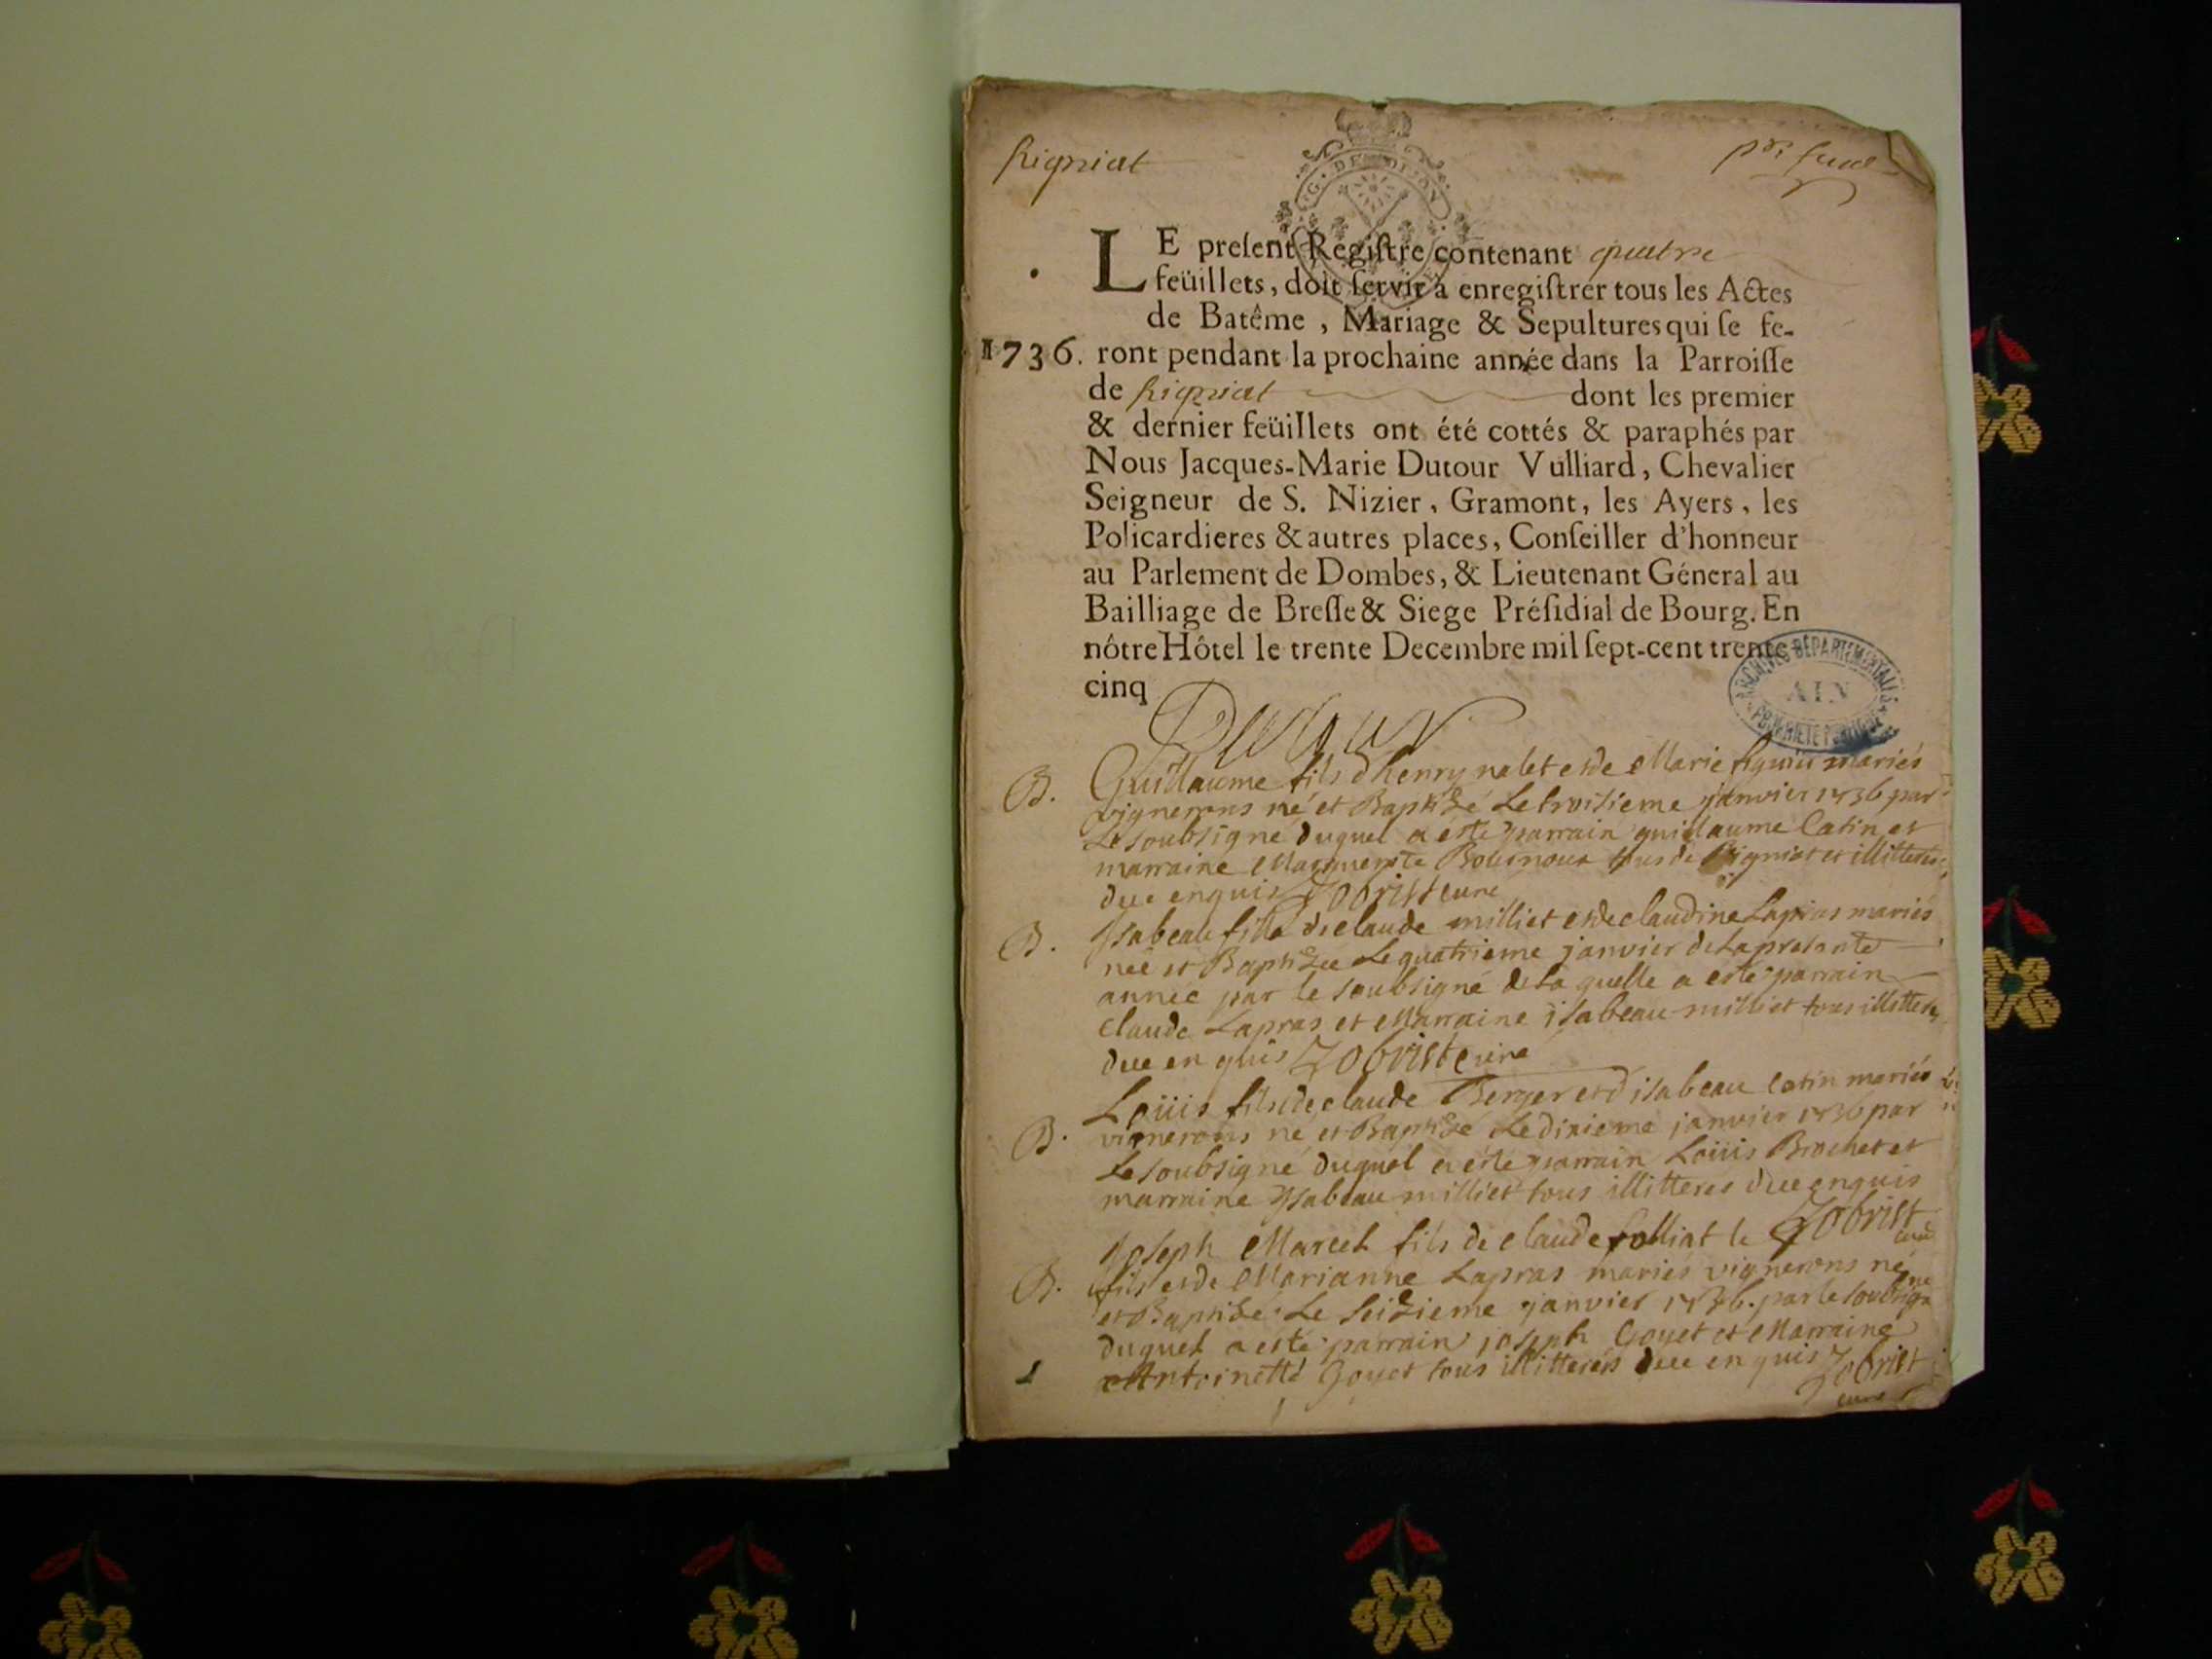 Rigniat
G. DE DIJON
LE preſent Regiſtre contenant quatre
feüillets, doit ſervir à enregiſtrer tous les Actes
de Batême, Mariage & Sepultures qui ſe fe-
1736. ront pendant la prochaine année dans la Parroiſſe
de Rigniat dont les premier
& dernier feüillets ont été cottés & paraphés par
Nous Jacques-Marie Dutour Vulliard, Chevalier
Seigneur de S. Nizier, Gramont, les Ayers, les
Policardieres & autres places, Conſeiller d'honneur
au Parlement de Dombes, & Lieutenant Géneral au
Bailliage de Breſſe & Siege Préſidial de Bourg. En
nôtre Hôtel le trente Decembre mil ſept-cent trente
cinq
ARCHIVES DÉPARTEMENTALES
AIN
PROPRIÉTÉ PUBLIQUE
Dutour
B. Guillaume fils d henry nalet et de Marie mariés
vignerons né et Baptizé Le troisieme janvier 1736 par
Le soubsigné duquel a esté parrain guillaume Catin et
marraine Marguerite tous de Rigniat et illitteres
due enquis Zobrist curé
B. Ysabeau fille de claude milliet et de claudine Lapras mariés
née et Baptizee Le quatrieme janvier de La presante
année par le soubsigné de La quelle a esté parrain
Claude Lapras et Marraine isabeau milliet tous illitteres
due en quis Zobrist curé
Loüis fils de claude Berger et d isabeau Catin mariés
B. vignerons né et Baptizé Le dixieme janvier 1736 par
Le soubsigné duquel a esté parrain Loüis Brochet et
marraine Ysabeau milliet tous illitteres due enquis
Zobrist curé
Joseph Marcel fils de claude folliat le
B. fils et de Marianne Lapras mariés vignerons né
et Baptizé Le Seizieme janvier 1736. par le soubsigné
duquel a esté parrain joseph Goyet et Marraine
Antoinette Goyet tous illitterés due en quis Zobrist
curé